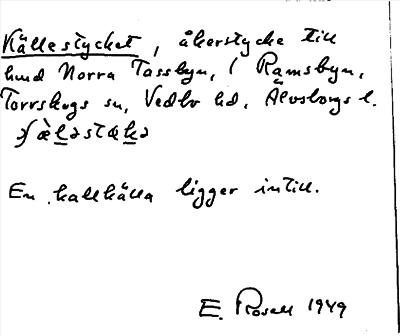 Källestycket, åkerstycke till
hmd Norra Tassbyn, i Rämsbyn,
Torrskogs sn, Vedbo hd, Älvsborgs l.
En kallkälla ligger intill.
E. Rosell 1949